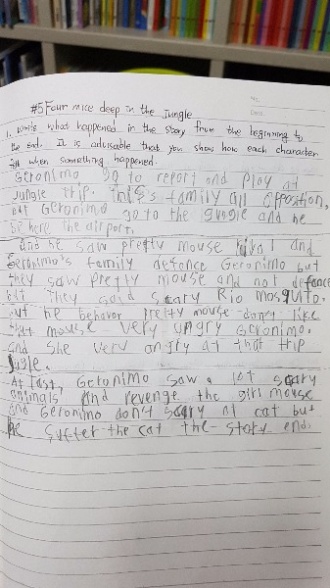 #5 Four mice deep in the Jungle
1. Write what happened in the story from the beginning to
the end. It is advisable that you show how each character
felt when something happened.
Geronimo go to report and play at
Jungle trip. family all opposition,
but Geronimo go to the and he
be here the airport.
And he saw pretty mouse and
Geronimo's family defence Geronimo but
they saw pretty mouse and not defence
but they said scary Rio mosquito.
but he behavor pretty mouse don't like
that mouse very ungry Geronimo.
and she very angry at that trip
At last, Geronimo saw a lot scary
animals and revenge the girl mouse
and Geronimo don't scary at cat but
he suffer the cat the story end.